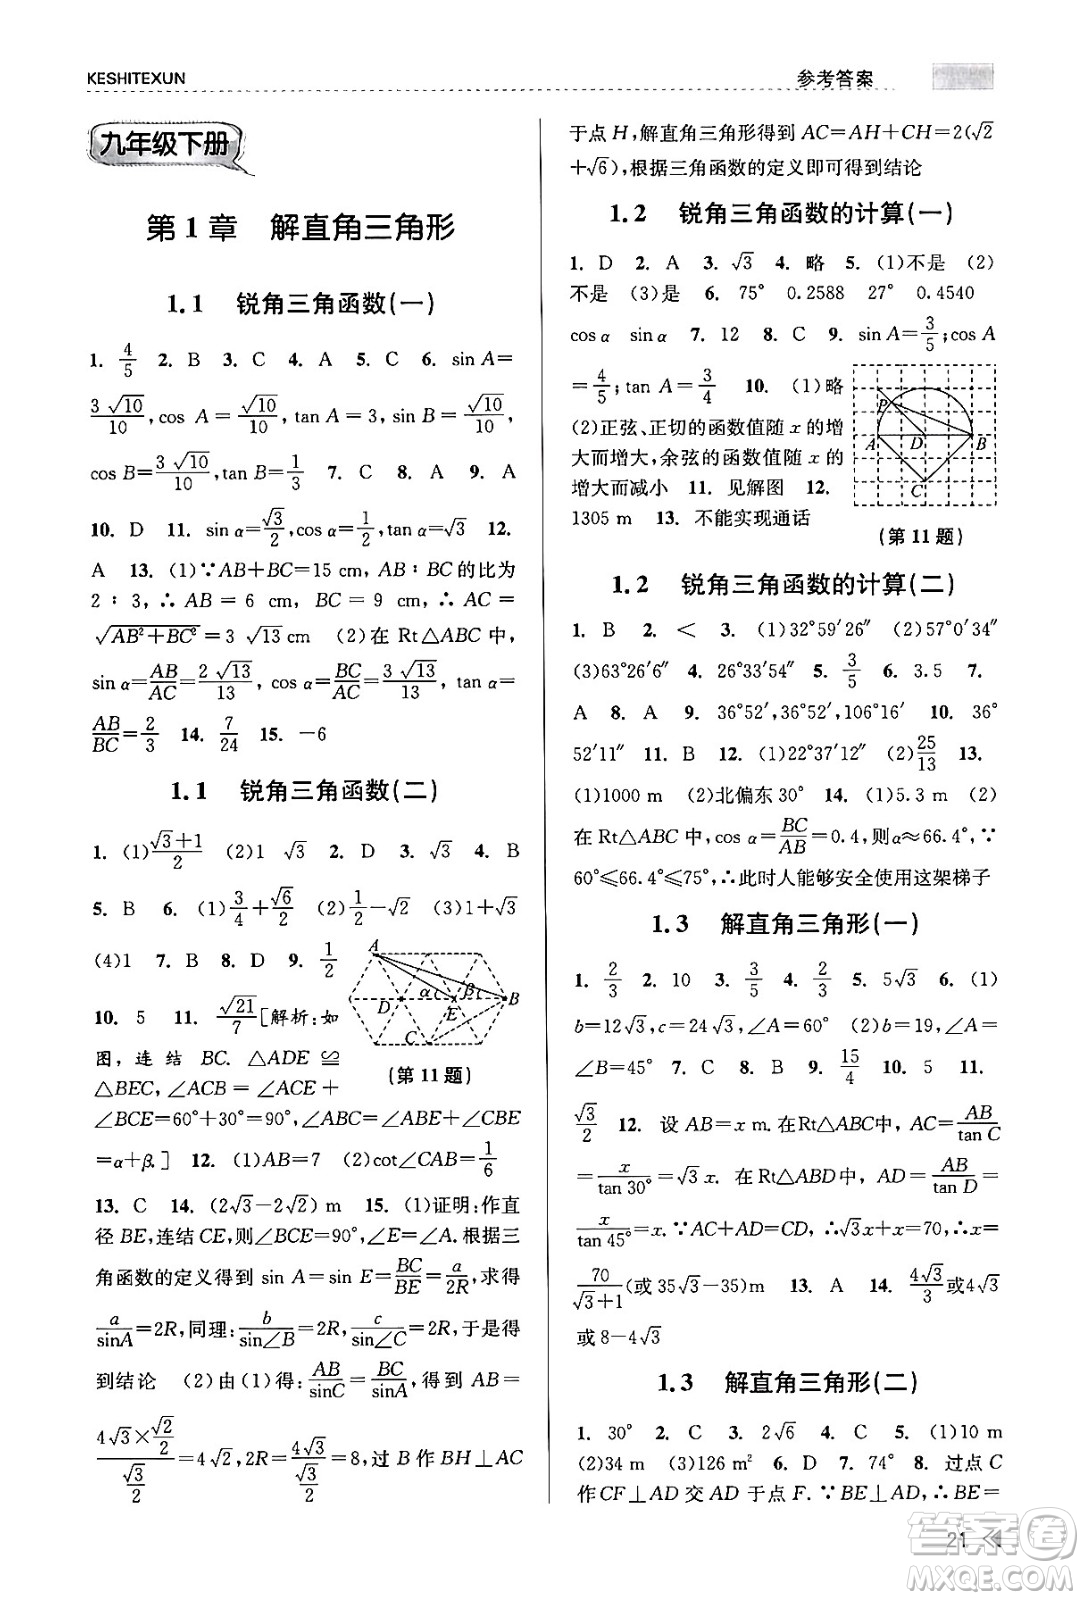 KESHITEXUN
参考答案
九年级下册
第 1 章　解直角三角形
1.1　锐角三角函数(一)
1. 4/5　2. B　3. C　4. A　5. C　6. sin A=
3√10/10, cos A=√10/10, tan A=3, sin B=√10/10,
cos B=3√10/10, tan B=1/3　7. C　8. A　9. A
10. D　11. sin α=√3/2, cos α=1/2, tan α=√3　12.
A　13. (1)∵AB+BC=15 cm, AB∶BC的比为
2∶3, ∴AB=6 cm, BC=9 cm, ∴AC=
√(AB²+BC²)=3√13 cm　(2)在 Rt△ABC 中,
sin α=AB/AC=2√13/13, cos α=BC/AC=3√13/13, tan α=
AB/BC=2/3　14. 7/24　15. −6
1.1　锐角三角函数(二)
1. (1)(√3+1)/2　(2)1　√3　2. D　3. √3　4. B
5. B　6. (1)3/4+√6/2　(2)1/2−√2　(3)1+√3
(4)1　7. B　8. D　9. 1/2
10. 5　11. √21/7 [解析:如
图, 连结 BC. △ADE≌
△BEC, ∠ACB=∠ACE+
∠BCE=60°+30°=90°, ∠ABC=∠ABE+∠CBE
=α+β.]　12. (1)AB=7　(2)cot∠CAB=1/6
A　α　β　B　D　E　C
(第 11 题)
13. C　14. (2√3−2√2) m　15. (1)证明:作直
径 BE,连结 CE,则∠BCE=90°,∠E=∠A.根据三
角函数的定义得到 sin A=sin E=BC/BE=a/2R.于是求得
a/sinA=2R,同理:b/sin∠B=2R, c/sin∠C=2R,于是得
得到结论　(2)由(1)得:AB/sinC=BC/sinA,得到 AB=
(4√3×√2/2)/(√3/2)=4√2, 2R=4√3/(√3/2)=8, 过 B 作 BH⊥AC
于点 H,解直角三角形得到 AC=AH+CH=2(√2
+√6),根据三角函数的定义即可得到结论
1.2　锐角三角函数的计算(一)
1. D　2. A　3. √3　4. 略　5. (1)不是　(2)
不是　(3)是　6. 75°　0.2588　27°　0.4540
cos α　sin α　7. 12　8. C　9. sin A=3/5; cos A
=4/5; tan A=3/4　10. (1)略
(2)正弦、正切的函数值随 x 的增
大而增大,余弦的函数值随 x 的
增大而减小　11. 见解图　12.
1305 m　13. 不能实现通话
P　A　D　B　C
(第 11 题)
1.2　锐角三角函数的计算(二)
1. B　2. <　3. (1)32°59′26″　(2)57°0′34″
(3)63°26′6″　4. 26°33′54″　5. 3/5　6. 3.5　7.
A　8. A　9. 36°52′,36°52′,106°16′　10. 36°
52′11″　11. B　12. (1)22°37′12″　(2)25/13　13.
(1)1000 m　(2)北偏东 30°　14. (1)5.3 m　(2)
在 Rt△ABC 中, cos α=BC/AB=0.4,则 α≈66.4°,∵
60°≤66.4°≤75°,∴此时人能够安全使用这架梯子
1.3　解直角三角形(一)
1. 2/3　2. 10　3. 3/5　4. 2/3　5. 5√3　6. (1)
b=12√3,c=24√3,∠A=60°　(2)b=19,∠A=
∠B=45°　7. C　8. B　9. 15/4　10. 5　11.
√3/2　12. 设 AB=x m.在Rt△ABC中,AC=AB/tan C
=x/tan 30°=√3x. 在 Rt△ABD 中, AD=AB/tan D=
x/tan 45°=x. ∵AC+AD=CD, ∴√3x+x=70, ∴x=
70/(√3+1)(或 35√3−35)m　13. A　14. 4√3/3或4√3
或 8−4√3
1.3　解直角三角形(二)
1. 30°　2. C　3. 2√6　4. C　5. (1)10 m
(2)34 m　(3)126 m²　6. D　7. 74°　8. 过点 C
作 CF⊥AD 交 AD 于点 F. ∵BE⊥AD,∴BE=
21
答案卷
MXQE.COM